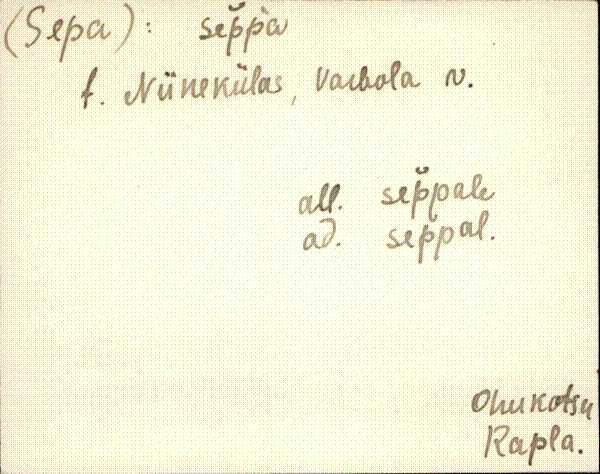 (Sepa): sep̆pà
t. Niinekülas, Varbola v.
all. sep̆pale
ad. sep̆pal.
Ohukotsu
Rapla.